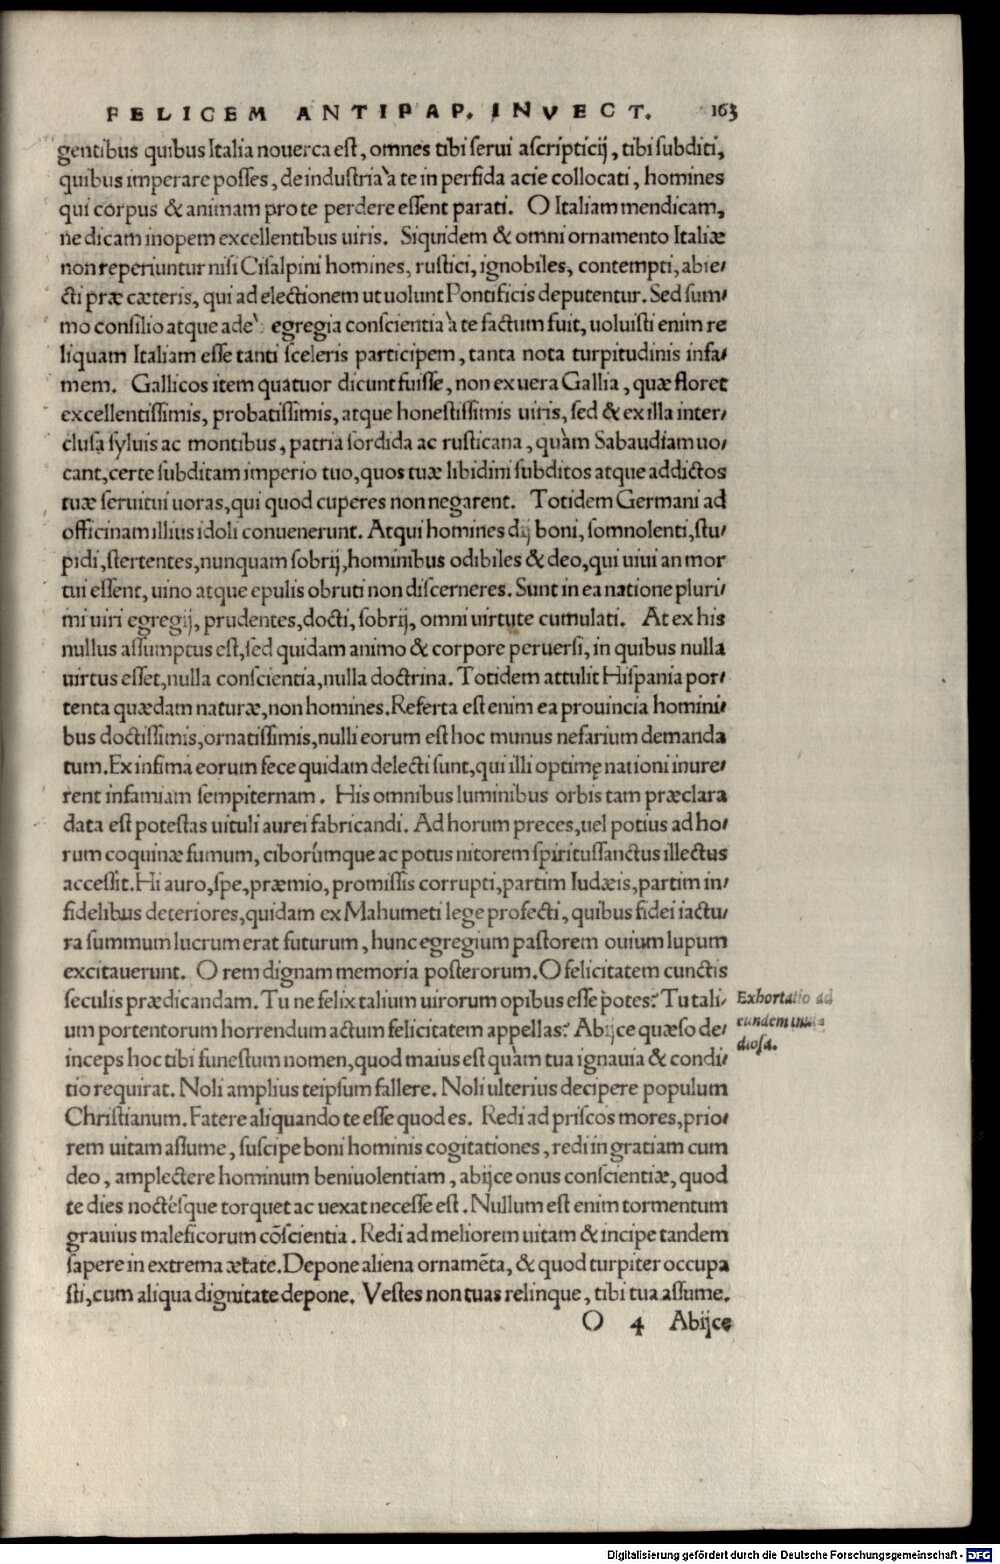 FELICEM ANTIPAP. INVECT. 163
gentibus quibus Italia nouerca est, omnes tibi serui ascripticij, tibi subditi,
quibus imperare posses, de industria à te in perfida acie collocati, homines
qui corpus & animam pro te perdere essent parati. O Italiam mendicam,
ne dicam inopem excellentibus uiris. Siquidem & omni ornamento Italiæ
non reperiuntur nisi Cisalpini homines, rustici, ignobiles, contempti, abie/
cti præ cæteris, qui ad electionem ut uolunt Pontificis deputentur. Sed sum/
mo consilio atque adeò egregia conscientia à te factum fuit, uoluisti enim re
liquam Italiam esse tanti sceleris participem, tanta nota turpitudinis infa/
mem. Gallicos item quatuor dicunt fuisse, non ex uera Gallia, quæ floret
excellentissimis, probatissimis, atque honestissimis uiris, sed & ex illa inter/
clusa syluis ac montibus, patria sordida ac rusticana, quàm Sabaudiam uo/
cant, certe subditam imperio tuo, quos tuæ libidini subditos atque addictos
tuæ seruitui uoras, qui quod cuperes non negarent. Totidem Germani ad
officinam illius idoli conuenerunt. Atqui homines dij boni, somnolenti, stu/
pidi, stertentes, nunquam sobrij, hominibus odibiles & deo, qui uiui an mor
tui essent, uino atque epulis obruti non discerneres. Sunt in ea natione pluri/
mi uiri egregij, prudentes, docti, sobrij, omni uirtute cumulati. At ex his
nullus assumptus est, sed quidam animo & corpore peruersi, in quibus nulla
uirtus esset, nulla conscientia, nulla doctrina. Totidem attulit Hispania por/
tenta quædam naturæ, non homines. Referta est enim ea prouincia homini/
bus doctissimis, ornatissimis, nulli eorum est hoc munus nefarium demanda
tum. Ex infima eorum fece quidam delecti sunt, qui illi optimę nationi inure/
rent infamiam sempiternam. His omnibus luminibus orbis tam præclara
data est potestas uituli aurei fabricandi. Ad horum preces, uel potius ad ho/
rum coquinæ fumum, ciborúmque ac potus nitorem spiritussanctus illectus
accessit. Hi auro, spe, præmio, promissis corrupti, partim Iudæis, partim in/
fidelibus deteriores, quidam ex Mahumeti lege profecti, quibus fidei iactu/
ra summum lucrum erat futurum, hunc egregium pastorem ouium lupum
excitauerunt. O rem dignam memoria posterorum. O felicitatem cunctis
seculis prædicandam. Tu ne felix talium uirorum opibus esse potes? Tu tali/
um portentorum horrendum actum felicitatem appellas? Abijce quæso de/
inceps hoc tibi funestum nomen, quod maius est quàm tua ignauia & condi/
tio requirat. Noli amplius teipsum fallere. Noli ulterius decipere populum
Christianum. Fatere aliquando te esse quod es. Redi ad priscos mores, prio/
rem uitam assume, suscipe boni hominis cogitationes, redi in gratiam cum
deo, amplectere hominum beniuolentiam, abijce onus conscientiæ, quod
te dies noctésque torquet ac uexat necesse est. Nullum est enim tormentum
grauius maleficorum cōscientia. Redi ad meliorem uitam & incipe tandem
sapere in extrema ætate. Depone aliena ornamēta, & quod turpiter occupa
sti, cum aliqua dignitate depone. Vestes non tuas relinque, tibi tua assume.
O 4 Abijce
Exhortatio ad
eundem inui/
diosa.
Digitalisierung gefördert durch die Deutsche Forschungsgemeinschaft - DFG